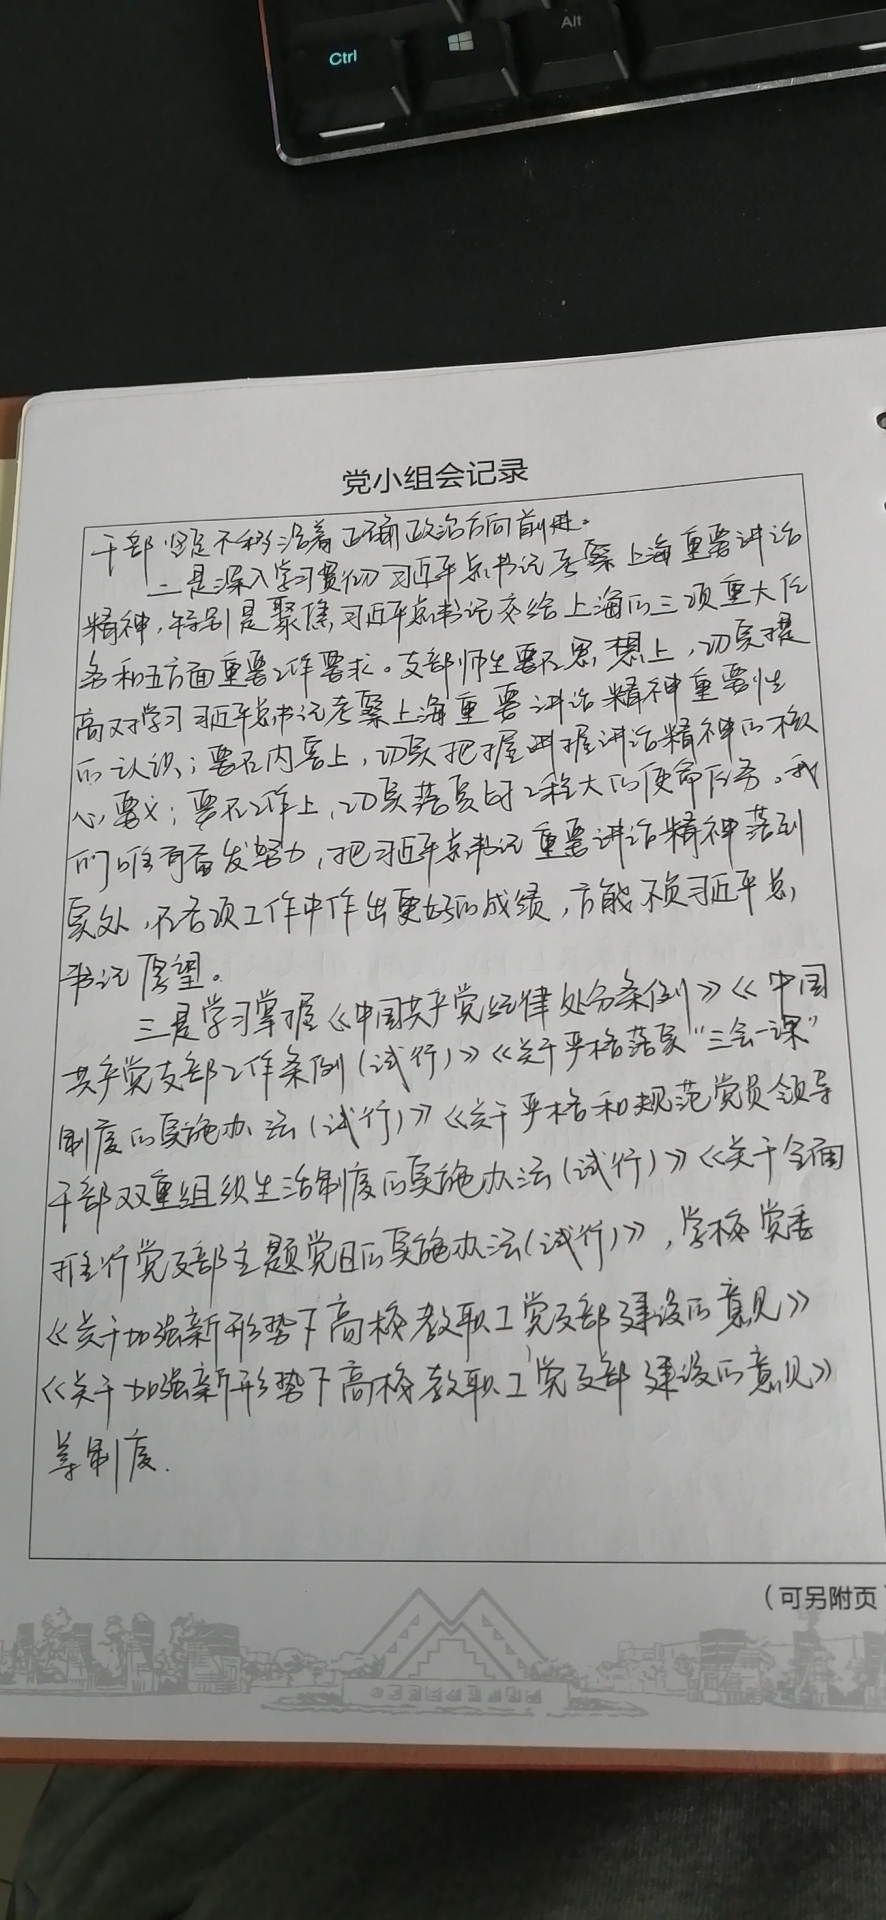 Ctrl
Alt
党小组会记录
干部坚定不移沿着正确政治方向前进。
二是深入学习贯彻习近平总书记考察上海重要讲话
精神,特别是聚焦习近平总书记交给上海的三项重大任
务和五方面重要工作要求。支部师生要在思想上,切实提
高对学习习近平总书记考察上海重要讲话精神重要性
的认识;要在内容上,切实把握掌握讲话精神的核
心要义;要在工作上,切实落实时工程大的使命任务。我
们唯有奋发努力,把习近平总书记重要讲话精神落到
实处,在各项工作中作出更好的成绩,方能不负习近平总
书记厚望。
三是学习掌握《中国共产党纪律处分条例》《中国
共产党支部工作条例(试行)》《关于严格落实“三会一课”
制度的实施办法(试行)》《关于严格和规范党员领导
干部双重组织生活制度的实施办法(试行)》《关于全面
推行党支部主题党日的实施办法(试行)》,学校党委
《关于加强新形势下高校教职工党支部建设的意见》
《关于加强新形势下高校教职工党支部建设的意见》
等制度.
(可另附页